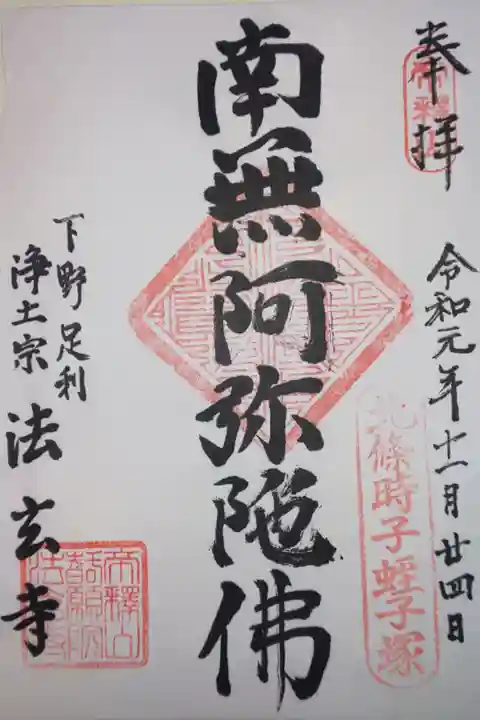 奉拝
帝釋山
令和元年十一月廿四日
北條時子蛭子塚
南無阿弥陀佛
下野足利
浄土宗
法玄寺
帝釋山
智願院
法玄寺